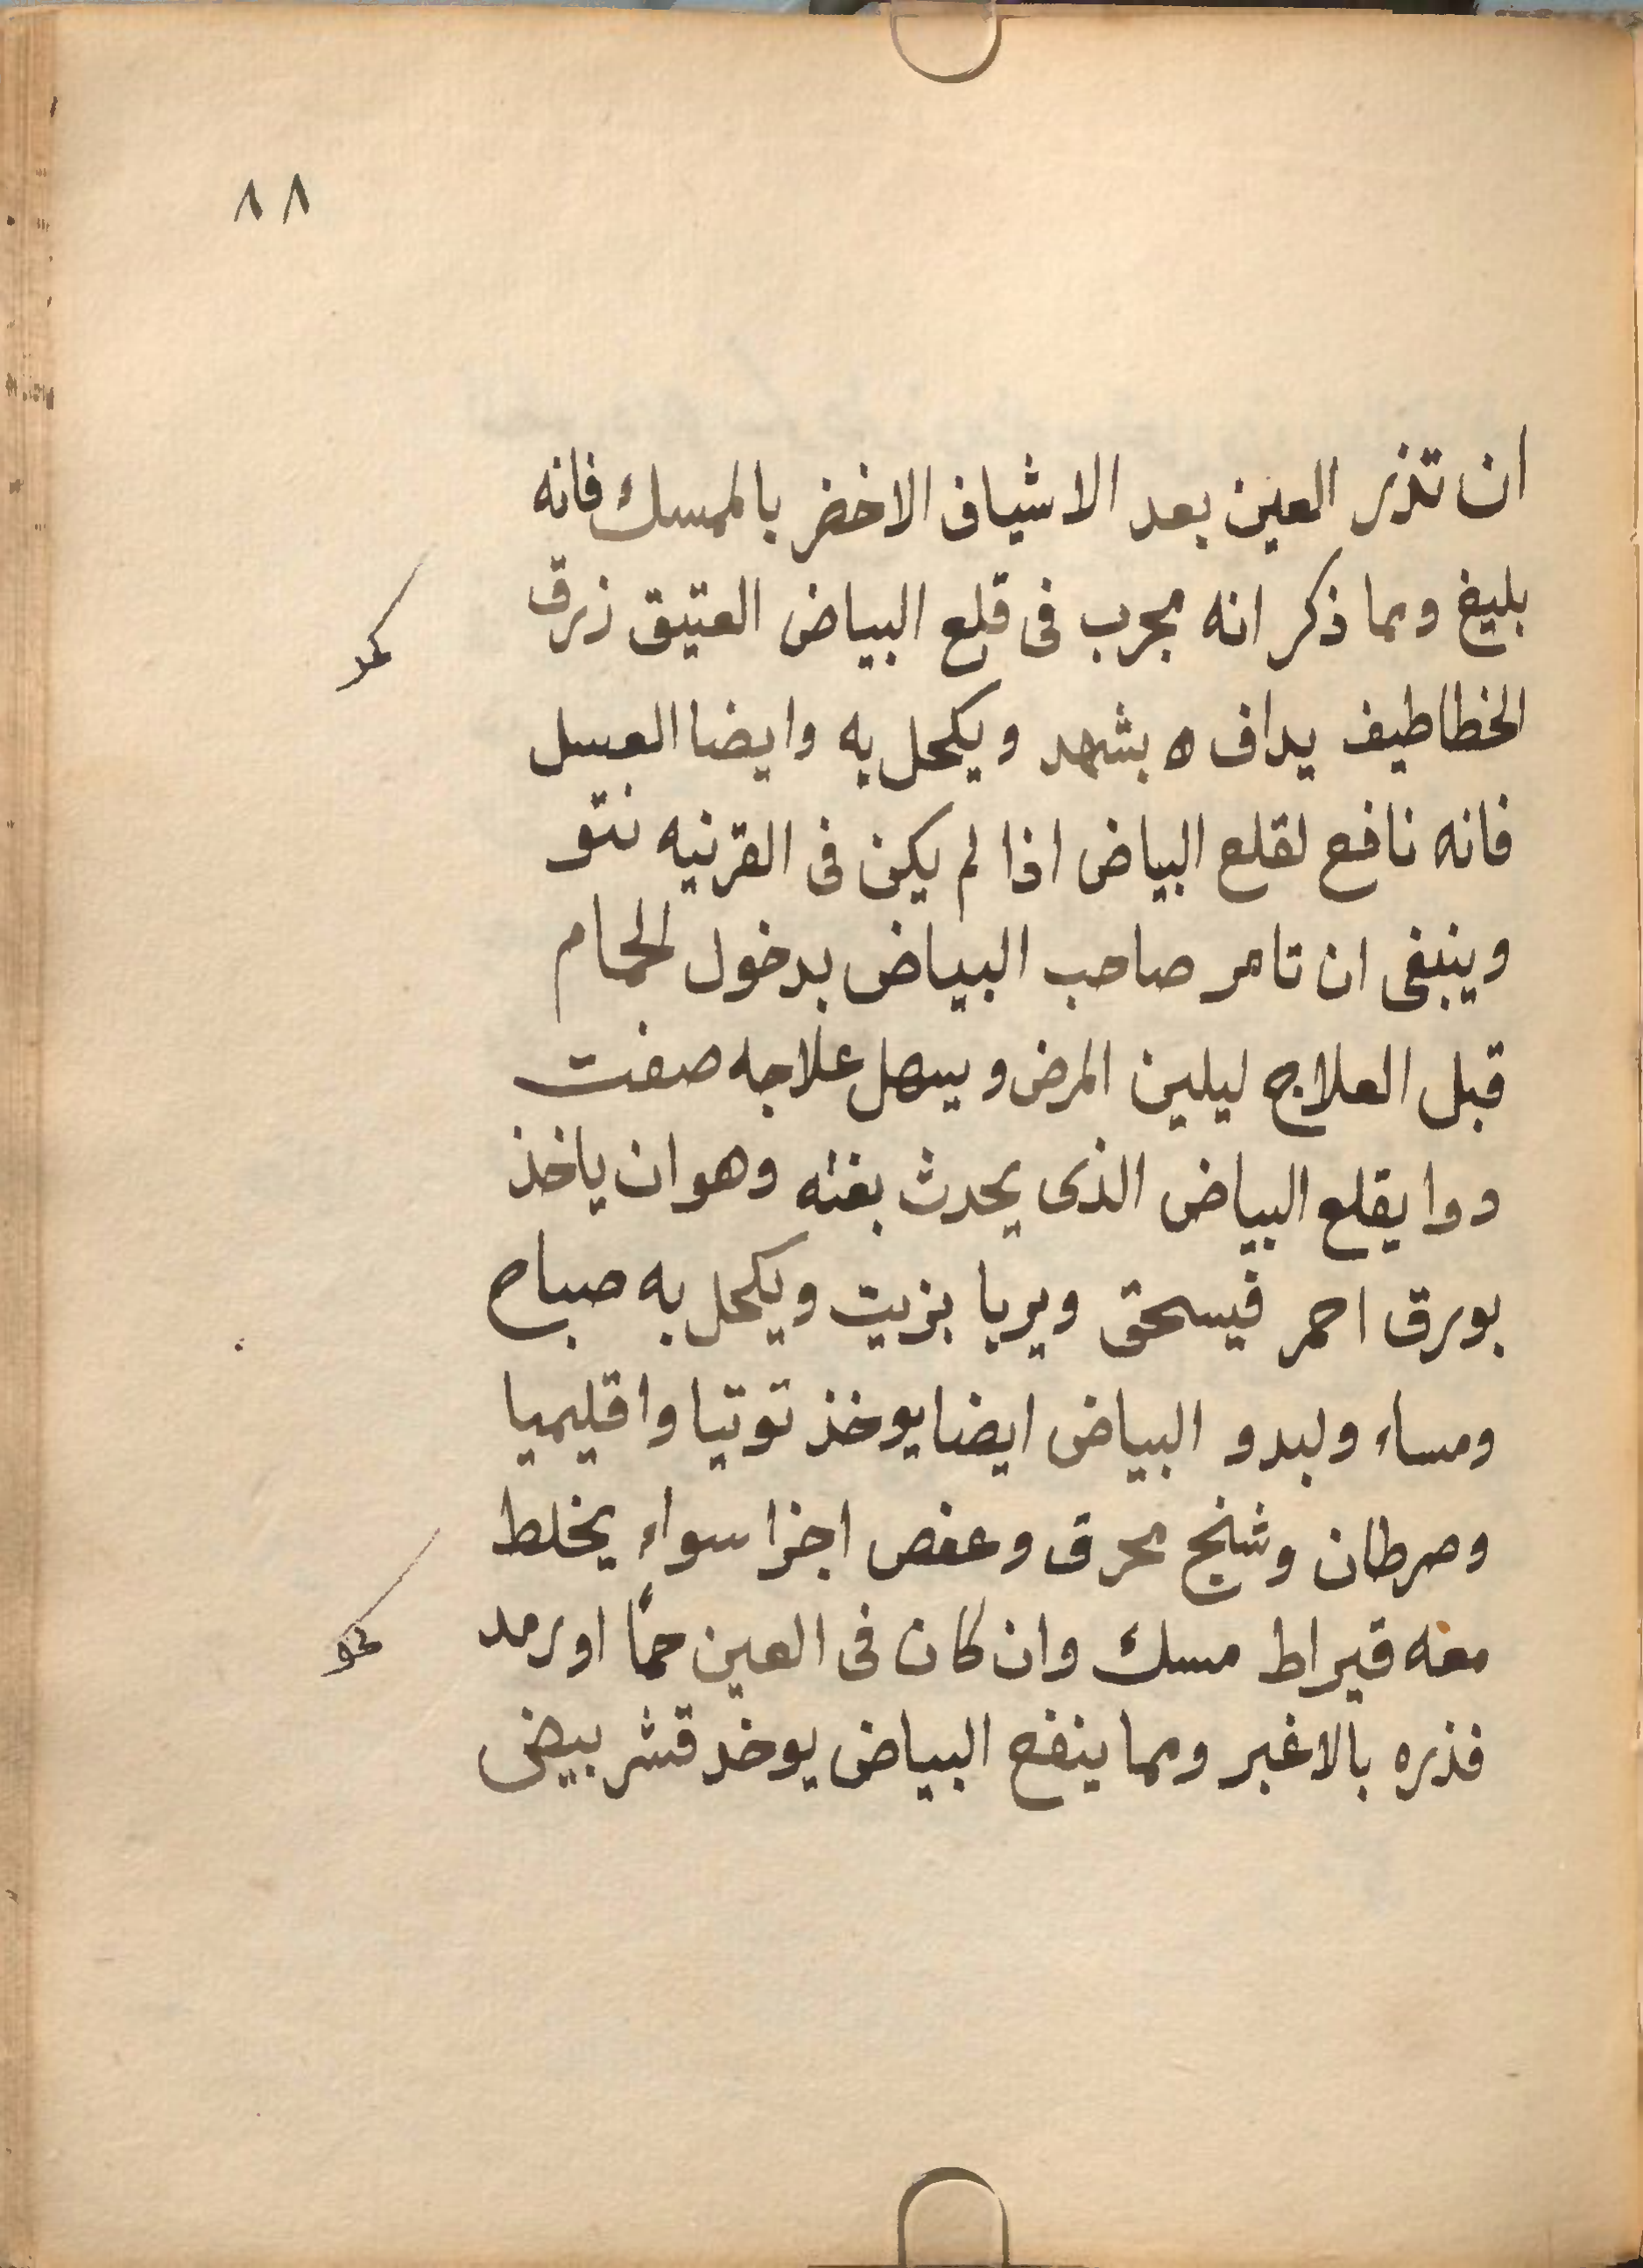 ٨٨
ان تذر العين بعد الاشياف الاخضر بالمسك فانه
بليغ ومما ذكر انه مجرب فى قلع البياض العتيق زرق
الخطاطيف يداف ه بشهد ويكحل به وايضا العسل
فانه نافع لقلع البياض اذا لم يكن فى القرنيه نتو
وينبغى ان تامر صاحب البياض بدخول الحمام
قبل العلاج ليلين المرض ويسهل علاجه صفت
دوا يقلع البياض الذى يحدث بغته وهو ان ياخذ
بورق احمر فيسحق ويربا بزيت ويكحل به صباح
ومساء ولبدو البياض ايضا يوخذ توتيا واقليميا
وصرطان وشنج محرق وعفص اجزا سواء يخلط
معه قيراط مسك وان كان فى العين حمًا او رمد
فذره بالاغبر ومما ينفع البياض يوخد قشر بيض